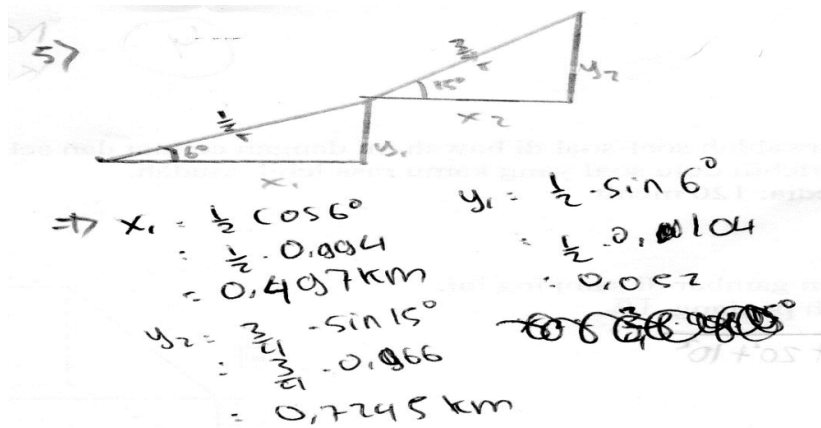 5)
1/2
6°
x₁
y₁
15°
x2
y2
⇒ x₁ = 1/2 cos 6°
: 1/2 · 0,994
= 0,497 km
y₁ = 1/2 · sin 6°
: 1/2 · 0,104
: 0,052
y2 = 3/4 · sin 15°
: 3/4 · 0,966
: 0,7245 km